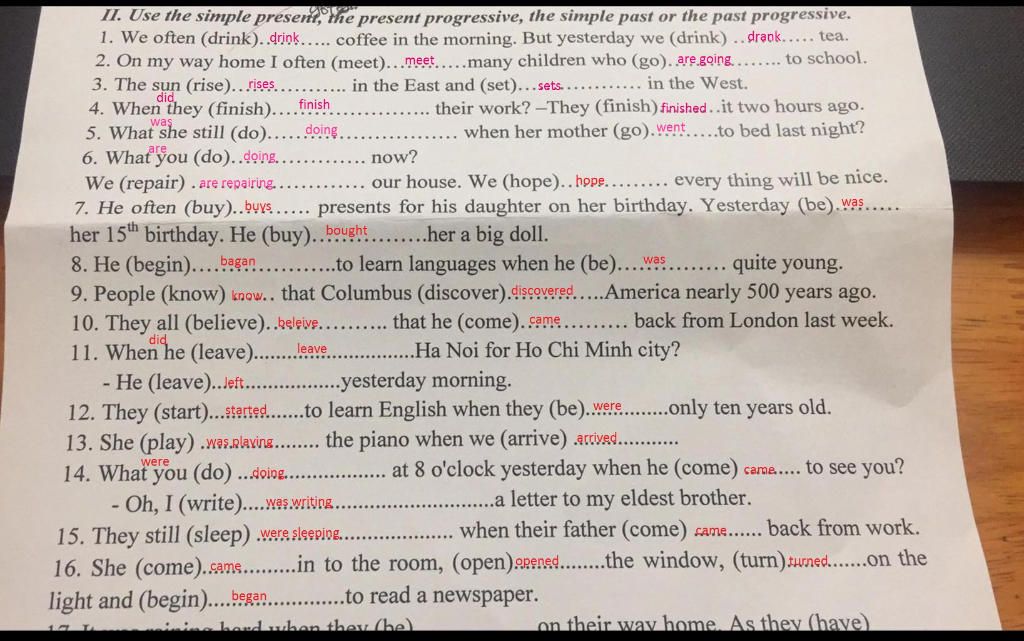 II. Use the simple present, the present progressive, the simple past or the past progressive.
1. We often (drink)..drink..... coffee in the morning. But yesterday we (drink) ..drank..... tea.
2. On my way home I often (meet)...meet......many children who (go)..are going........ to school.
3. The sun (rise)...rises............ in the East and (set)...sets............ in the West.
did
4. When they (finish).....finish................. their work? –They (finish)finished..it two hours ago.
was
5. What she still (do).....doing................. when her mother (go).went.....to bed last night?
are
6. What you (do)..doing............. now?
We (repair) .are repairing............. our house. We (hope)..hope......... every thing will be nice.
7. He often (buy)..buys..... presents for his daughter on her birthday. Yesterday (be).was.....
her 15th birthday. He (buy)...bought..........her a big doll.
8. He (begin)....bagan............to learn languages when he (be)....was.......... quite young.
9. People (know) know.. that Columbus (discover).discovered.....America nearly 500 years ago.
10. They all (believe)..beleive.......... that he (come)..came.......... back from London last week.
did
11. When he (leave).......leave..............Ha Noi for Ho Chi Minh city?
- He (leave)...left...............yesterday morning.
12. They (start)...started.......to learn English when they (be)..were..........only ten years old.
13. She (play) .was playing........ the piano when we (arrive) .arrived............
were
14. What you (do) ...doing................ at 8 o'clock yesterday when he (come) came..... to see you?
- Oh, I (write)....was writing..........................a letter to my eldest brother.
15. They still (sleep) .were sleeping.................. when their father (come) came...... back from work.
16. She (come)..came..........in to the room, (open)opened........the window, (turn)turned.......on the
light and (begin)....began..............to read a newspaper.
17. It was raining hard when they (be) on their way home. As they (have)